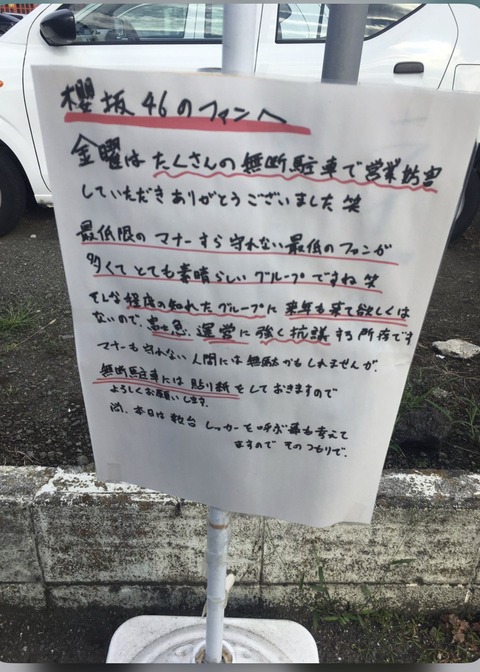 櫻坂46のファンへ
金曜は たくさんの無断駐車で営業妨害
していただきありがとうございました 笑
最低限の マナーすら守れない最低のファンが
多くて とても素晴らしい グループですね 笑
そんな 程度の知れたグループに 来年も来て欲しくは
ないので、富士急、運営に 強く抗議 する所存です
マナーも守れない 人間には 無駄かもしれませんが、
無断駐車には 貼り紙をしておきますので
よろしくお願いします。
尚、本日は 数台 レッカーを呼ぶ事も考えて
ますので そのつもりで。